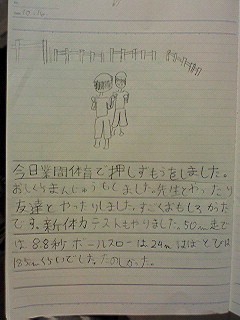 今日業間体育で押しずもうをしました。
おしくらまんじゅうもしました。先生とやったり
友達とやったりしました。すごくおもしろかった
です。新体力テストもやりました。50m走で
は8.8秒ボールスローは24mはばとびは
185mくらいでした。たのしかった。